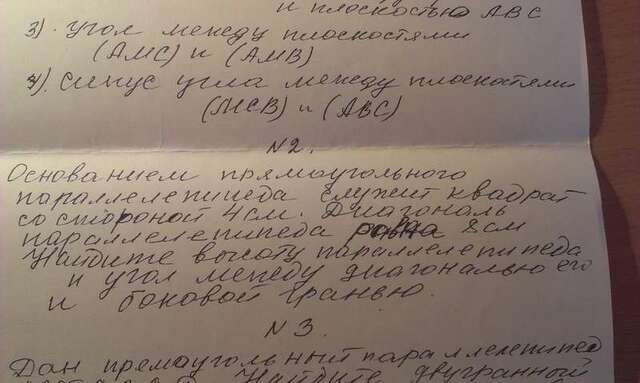 и плоскостью АВС
3). угол между плоскостями
(АМС) и (АМВ)
4). синус угла между плоскостями
(МСВ) и (АВС)
N2.
Основанием прямоугольного
параллелепипеда служит квадрат
со стороной 4см. Диагональ
параллелепипеда равна 8см
Найдите высоту параллелепипеда
и угол между диагональю его
и боковой гранью.
N3.
Дан прямоугольный параллелепипед
Найдите двугранный